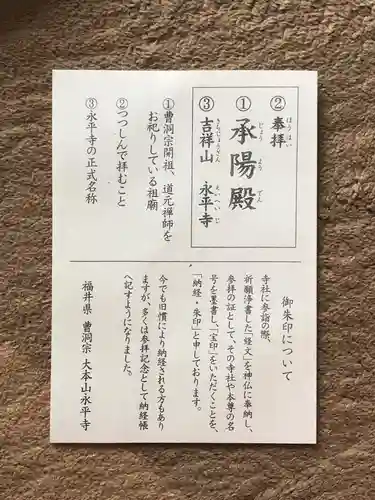 ② 奉拝
ほうはい
① 承陽殿
じょうようでん
③ 吉祥山 永平寺
きちじょうざん えいへいじ
①曹洞宗開祖、道元禅師を
お祀りしている祖廟
②つつしんで拝むこと
③永平寺の正式名称
御朱印について
寺社に参詣の際、
祈願浄書した「経文」を神仏に奉納し、
参拝の証として、その寺社や本尊の名
号を墨書し、「宝印」をいただくことを、
「納経・朱印」と申しております。
今でも旧慣により納経される方もあり
ますが、多くは参拝記念として納経帳
へ記すようになりました。
福井県 曹洞宗 大本山永平寺